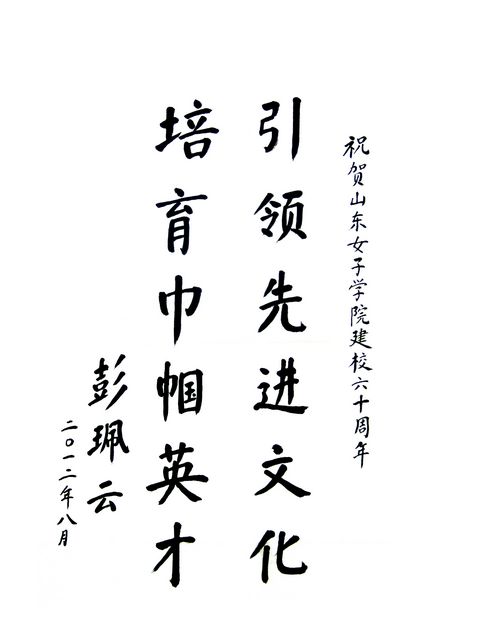 祝贺山东女子学院建校六十周年
引领先进文化
培育巾帼英才
彭珮云
二〇一二年八月